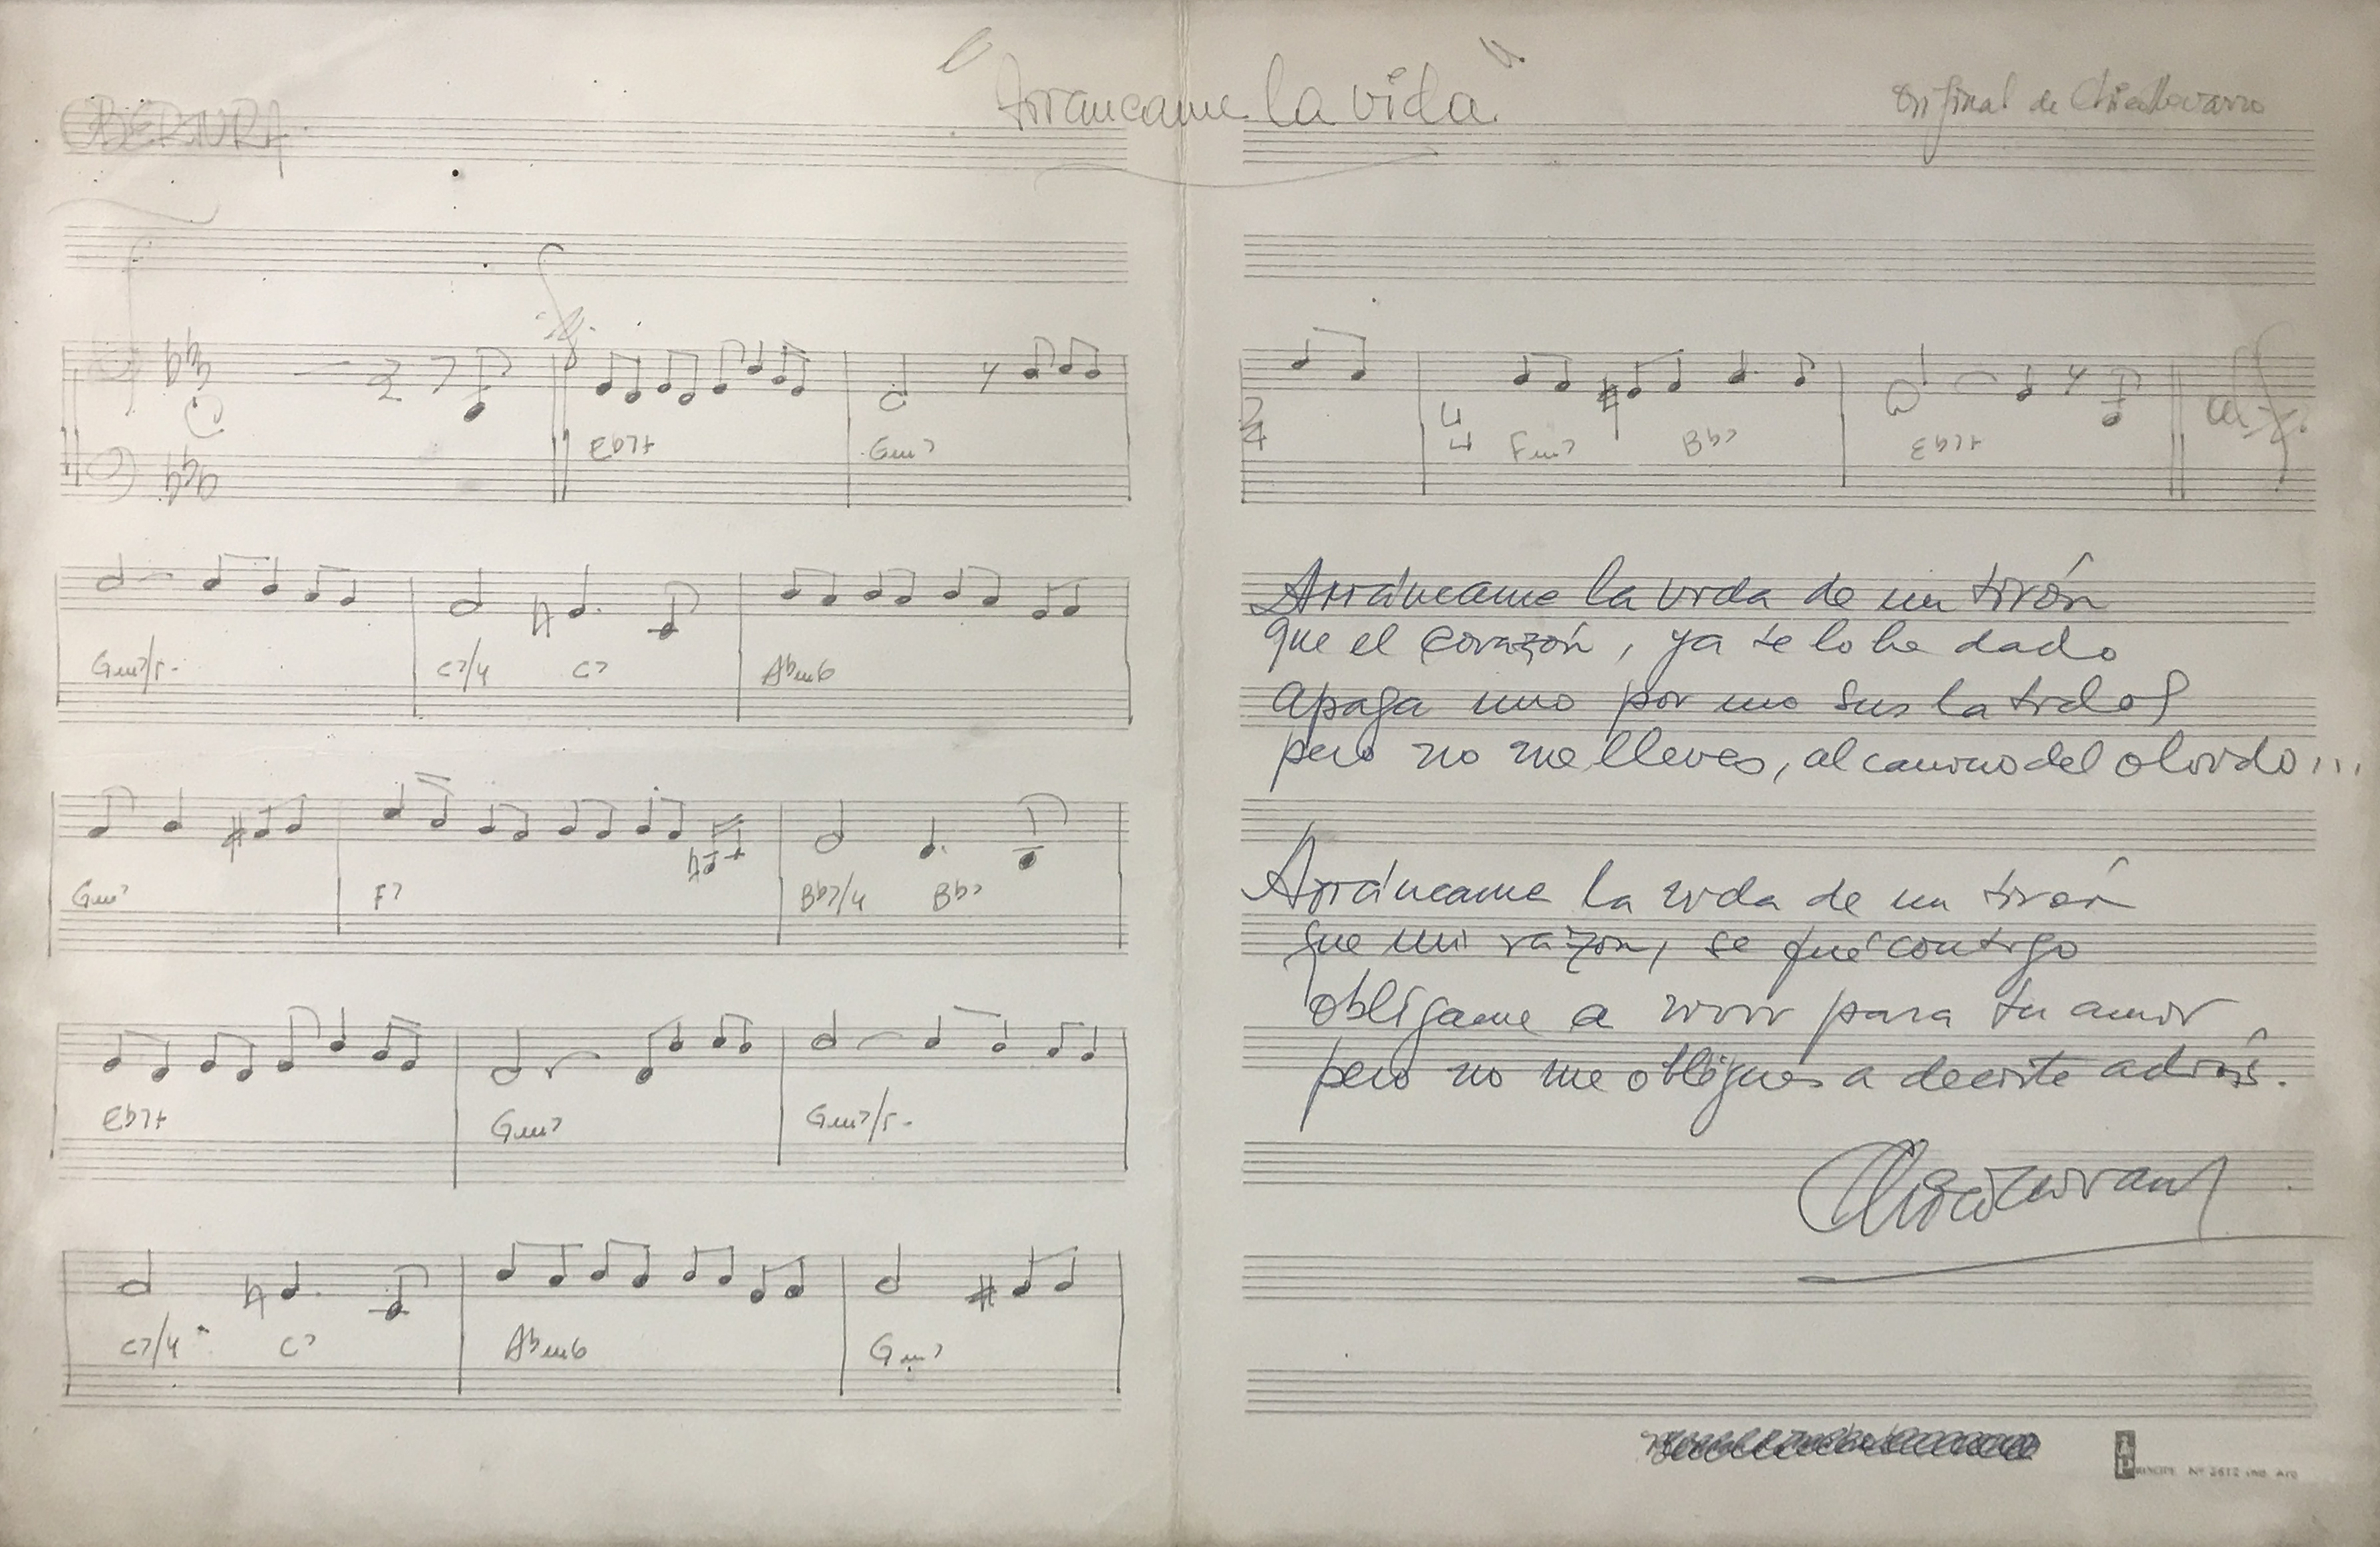 "Arrancame la vida"
Original de Chico Novarro
OBERTURA
Eb7+ Gm7
Gm7/5- C7/4 C7 Abm6
Gm7 F7 Bb7/4 Bb7
Eb7+ Gm7 Gm7/5-
C7/4 C7 Abm6 Gm7
2/4 4/4 Fm7 Bb7 Eb7+ al
Arráncame la vida de un tirón
que el corazón, ya te lo he dado
apaga uno por uno sus latidos
pero no me lleves, al camino del olvido...
Arráncame la vida de un tirón
que mi razón, se fué contigo
oblígame a vivir para tu amor
pero no me obligues a decirte adiós.
Chico Novarro
PRINCIPE Nº 2612 IND. ARG